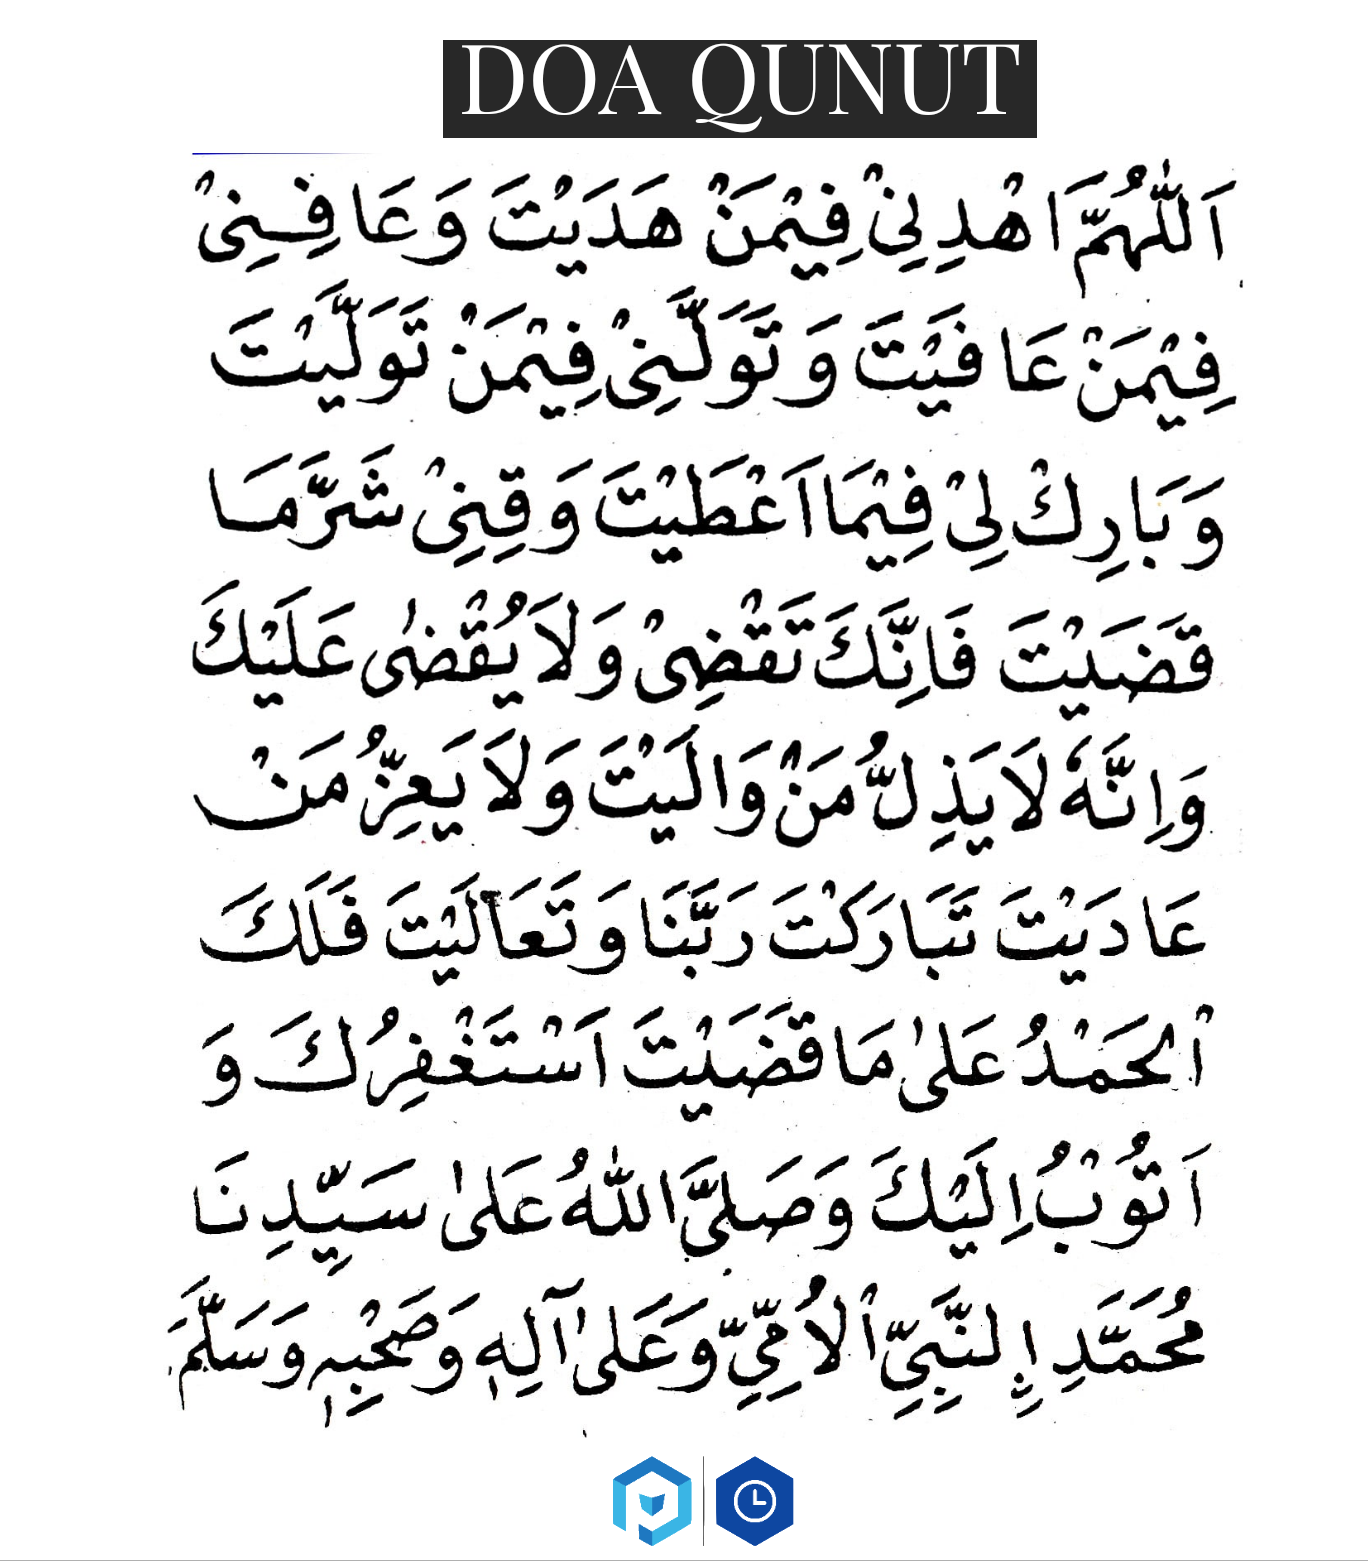 DOA QUNUT
اَللّٰهُمَّ اهْدِنِيْ فِيْمَنْ هَدَيْتَ وَعَافِنِىْ
فِيْمَنْ عَافَيْتَ وَتَوَلَّنِىْ فِيْمَنْ تَوَلَّيْتَ
وَبَارِكْ لِىْ فِيْمَا اَعْطَيْتَ وَقِنِىْ شَرَّمَا
قَضَيْتَ فَاِنَّكَ تَقْضِىْ وَلَا يُقْضٰى عَلَيْكَ
وَاِنَّهٗ لَا يَذِلُّ مَنْ وَالَيْتَ وَلَا يَعِزُّ مَنْ
عَادَيْتَ تَبَارَكْتَ رَبَّنَا وَتَعَالَيْتَ فَلَكَ
اْلحَمْدُ عَلٰى مَا قَضَيْتَ اَسْتَغْفِرُكَ وَ
اَتُوْبُ اِلَيْكَ وَصَلَّى اللّٰهُ عَلٰى سَيِّدِنَا
مُحَمَّدٍ اِلنَّبِيِّ اْلاُمِّيِّ وَعَلٰى آلِهٖ وَصَحْبِهٖ وَسَلَّمَ